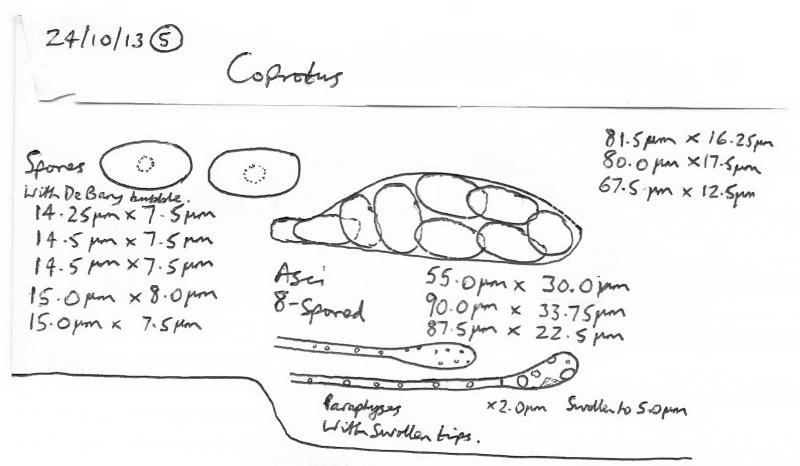 24/10/13 ⑤
Coprotus
81.5µm × 16.25µm
80.0µm × 17.5µm
67.5µm × 12.5µm
Spores
With De Bary bubble.
14.25µm × 7.5µm
14.5µm × 7.5µm
14.5µm × 7.5µm
15.0µm × 8.0µm
15.0µm × 7.5µm
Asci
8-Spored
55.0µm × 30.0µm
90.0µm × 33.75µm
87.5µm × 22.5µm
Paraphyses
With Swollen tips.
×2.0µm Swollen to 5.0µm